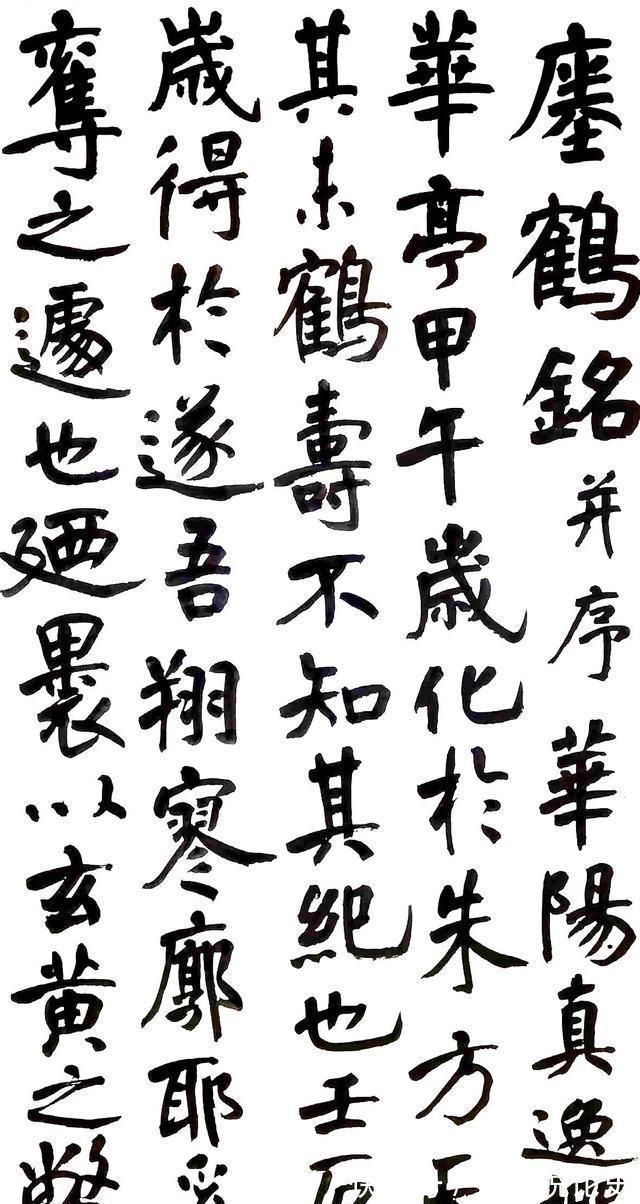 瘞鶴銘并序華陽真逸
華亭甲午歲化於朱方天
其未鶴壽不知其紀也壬辰
歲得於遂吾翔寥廓耶奚
奪之遽也廼裹以玄黃之幣